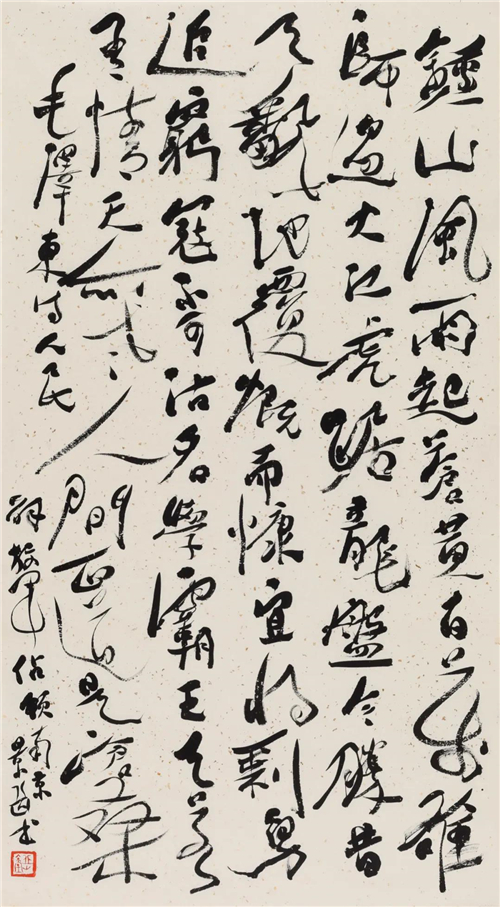 鍾山風雨起蒼黃百万雄
師過大江虎踞龍盤今勝昔
天飜地覆慨而慷宜將剩勇
追窮寇不可沽名學霸王天若
有情天亦老人間正道是滄桑
毛澤東詩人民
解放軍佔領南京景書